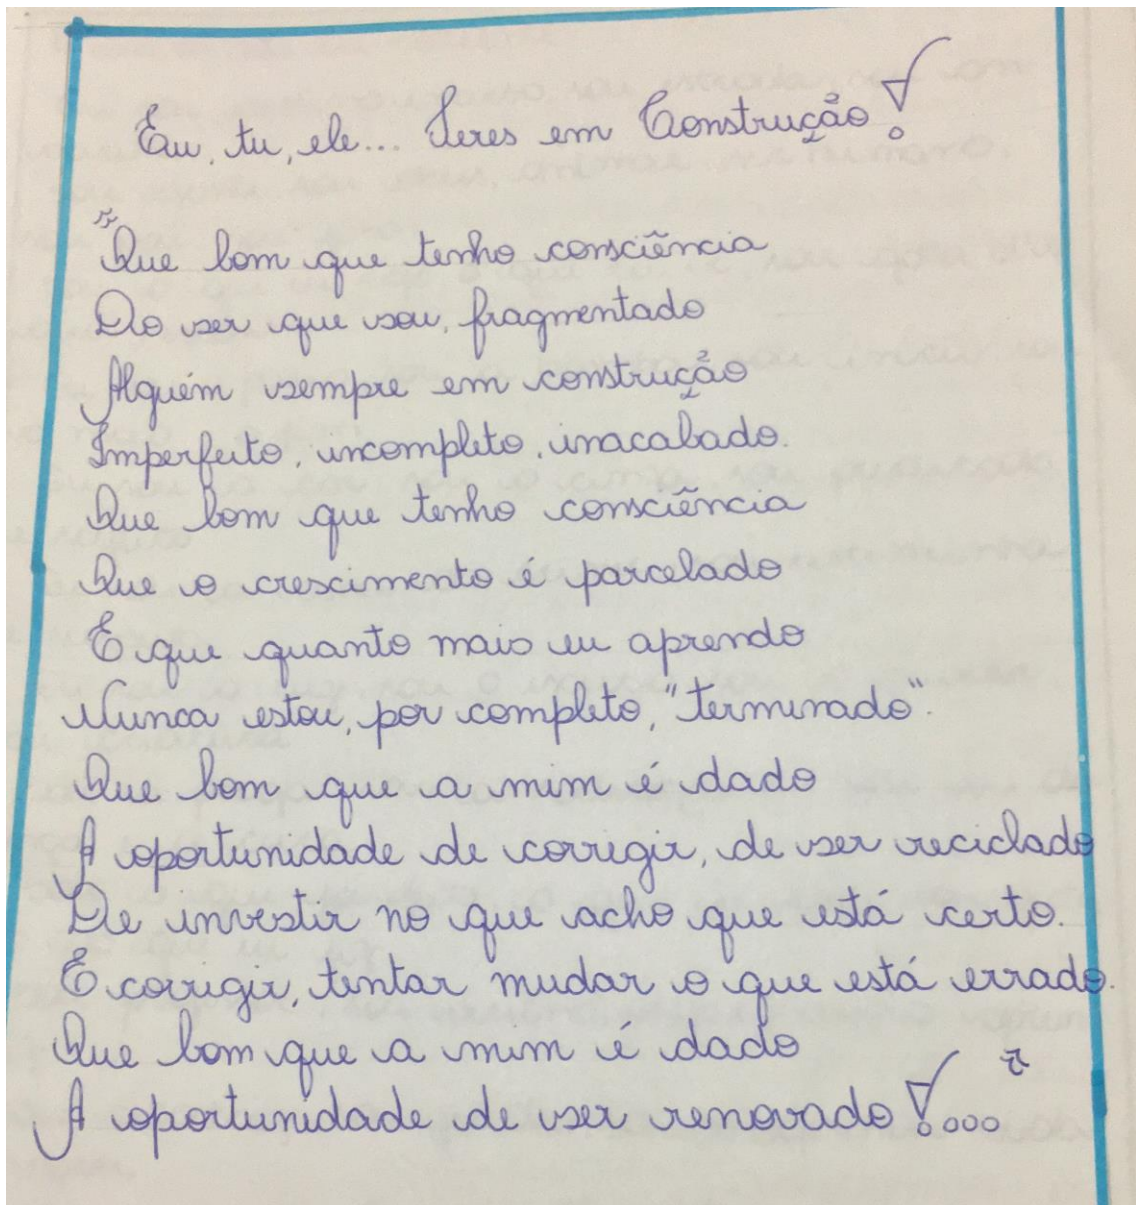 Eu, tu, ele... Seres em Construção!
"Que bom que tenho consciência
Do ser que sou, fragmentado
Alguém sempre em construção
Imperfeito, incompleto, inacabado.
Que bom que tenho consciência
Que o crescimento é parcelado
E que quanto mais eu aprendo
Nunca estou, por completo, "terminado".
Que bom que a mim é dado
A oportunidade de corrigir, de ser reciclado
De investir no que acho que está certo.
E corrigir, tentar mudar o que está errado.
Que bom que a mim é dado
A oportunidade de ser renovado!..."